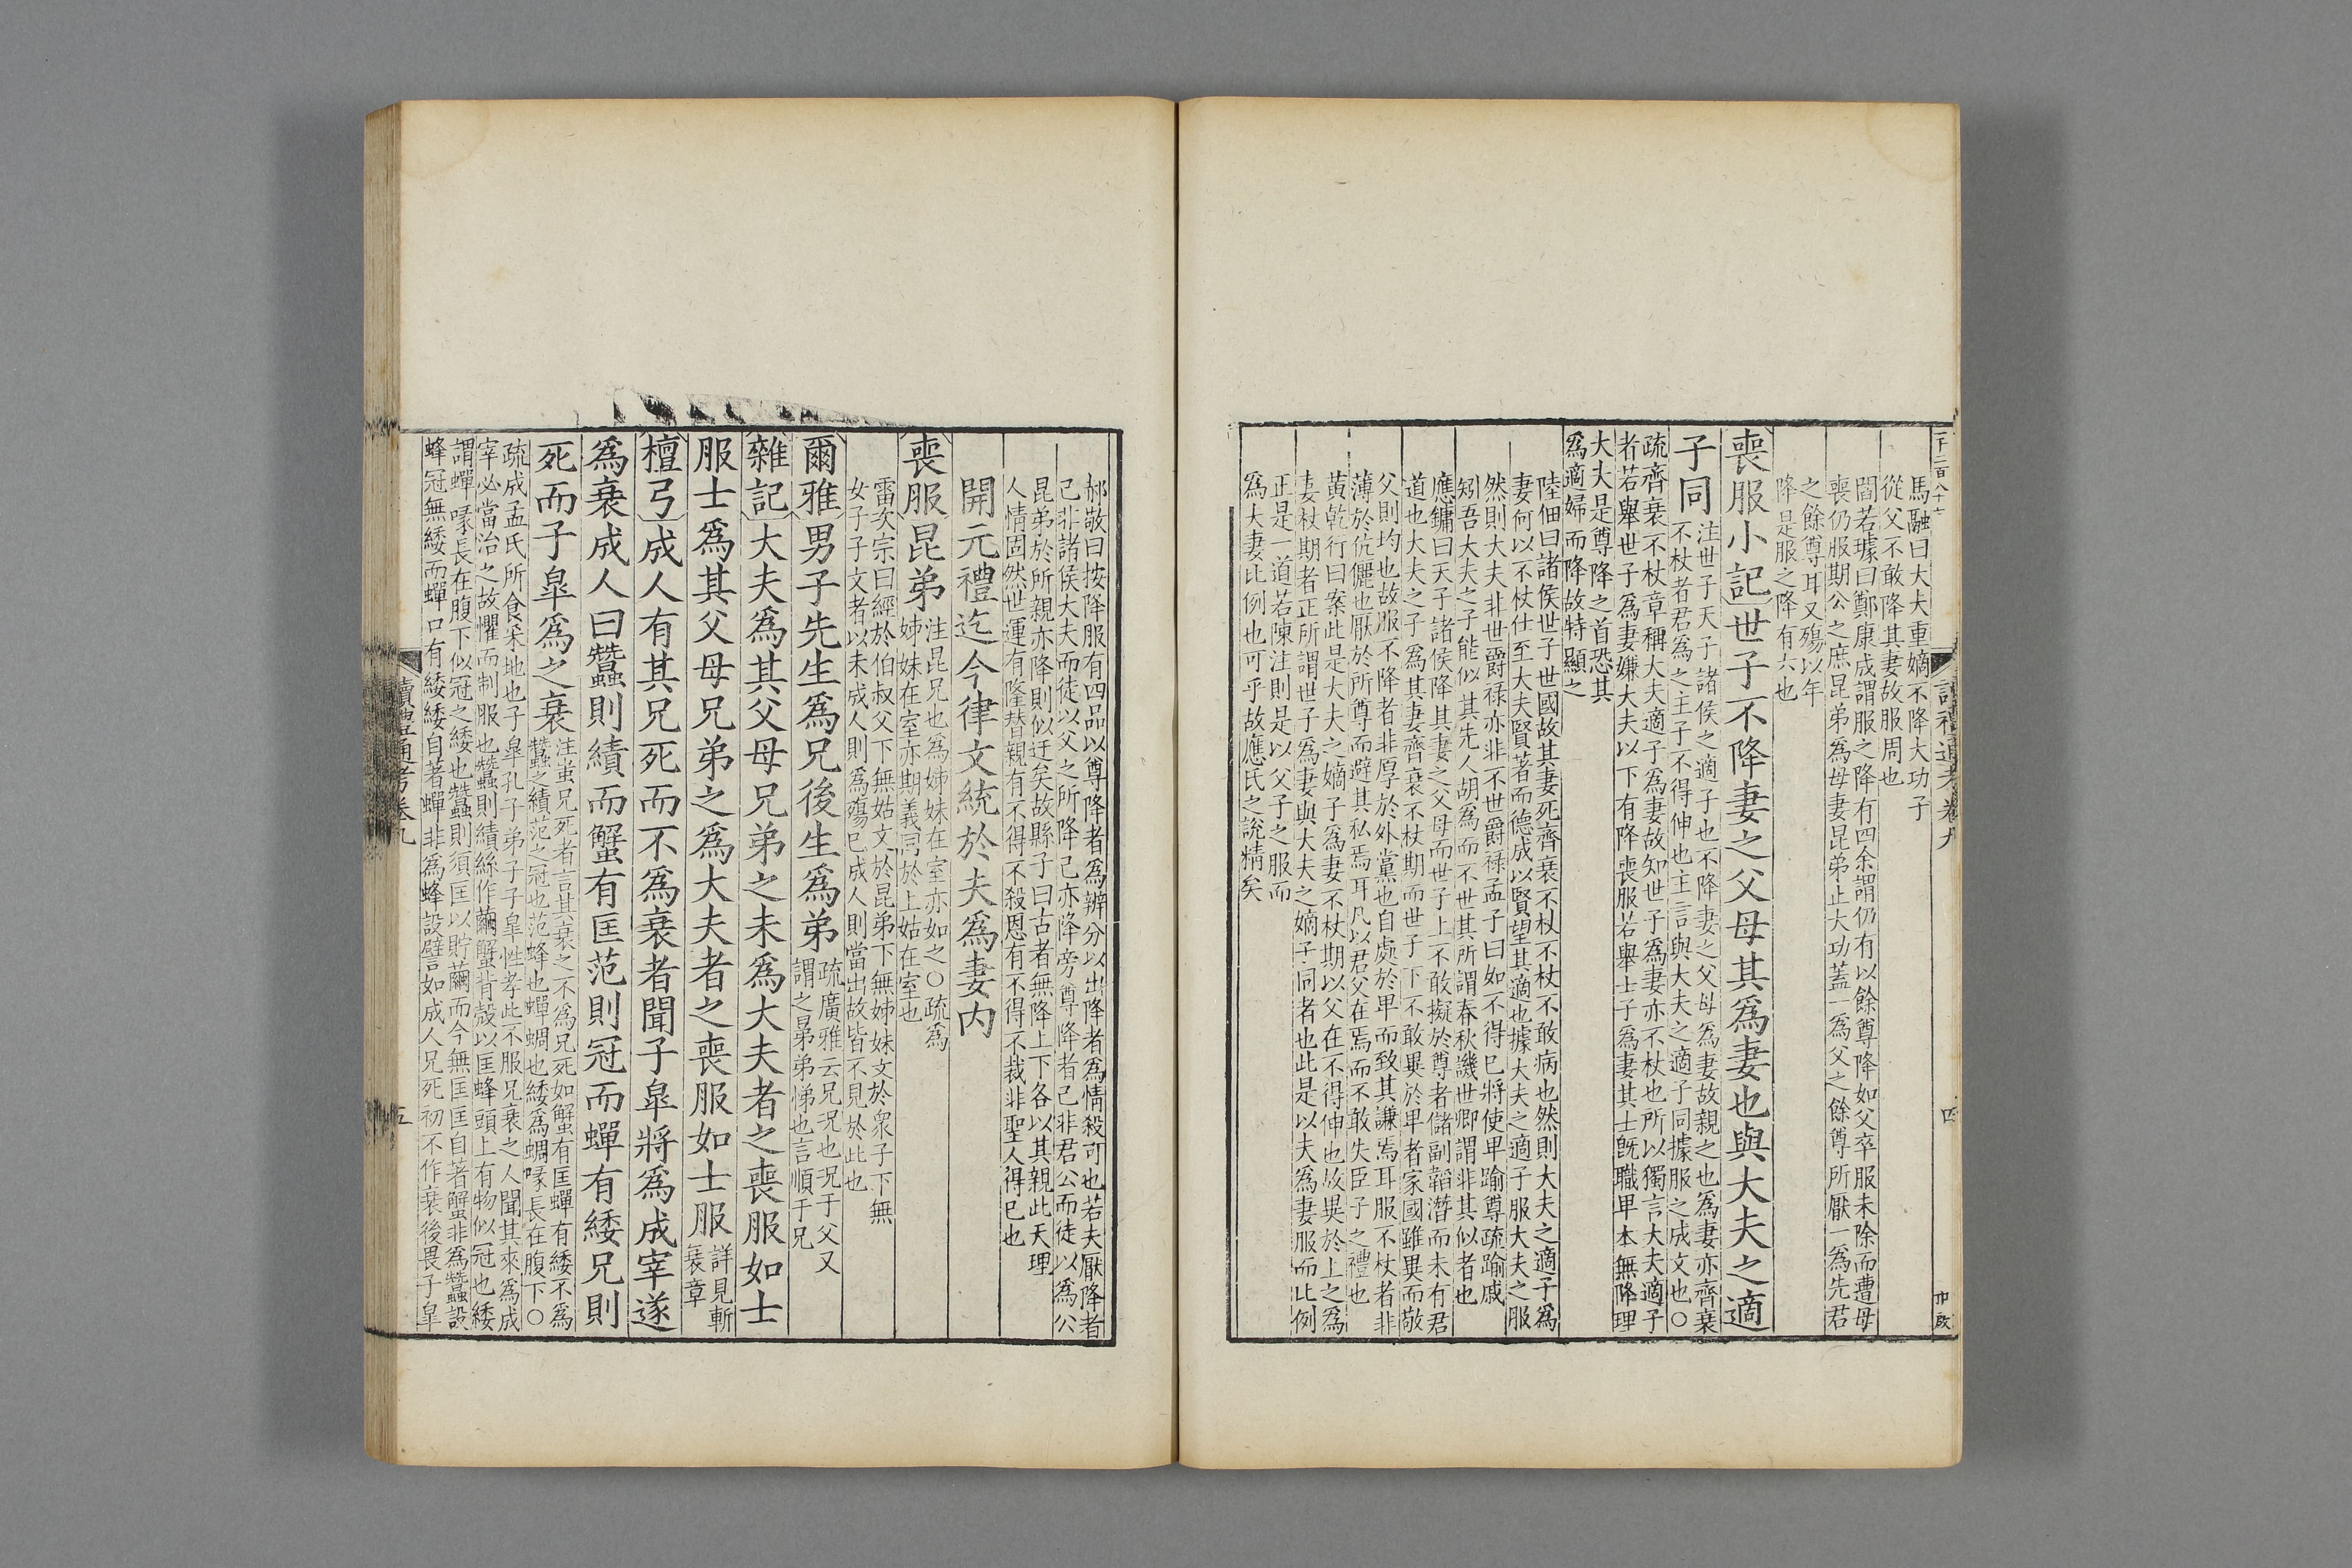 一千二百八十七
讀禮通考卷九
四
馬融曰大夫重嫡不降大功子
從父不敢降其妻故服周也
閻若璩曰鄭康成謂服之降有四余謂仍有以餘尊降如父卒服未除而遭母
喪仍服期公之庶昆弟爲母妻昆弟止大功蓋一爲父之餘尊所厭一爲先君
之餘尊耳又殤以年
降是服之降有六也
喪服小記世子不降妻之父母其爲妻也與大夫之適
子同
注世子天子諸侯之適子也不降妻之父母爲妻故親之也爲妻亦齊衰
不杖者君爲之主子不得伸也主言與大夫之適子同據服之成文也○
疏齊衰不杖章稱大夫適子爲妻故知世子爲妻亦不杖也所以獨言大夫適子
者若舉世子爲妻嫌大夫以下有降喪服若舉士子爲妻其士旣職卑本無降理
大夫是尊降之首恐其
爲適婦而降故特顯之
陸佃曰諸侯世子世國故其妻死齊衰不杖不杖不敢病也然則大夫之適子爲
妻何以不杖仕至大夫賢著而德成以賢望其適也據大夫之適子服大夫之服
然則大夫非世爵祿亦非不世爵祿孟子曰如不得已將使卑踰尊疏踰戚
矧吾大夫之子能似其先人胡爲而不世其所謂春秋譏世卿謂非其似者也
應鏞曰天子諸侯降其妻之父母而世子上不敢擬於尊者儲副韜潛而未有君
道也大夫之子爲其妻齊衰不杖期而世子下不敢異於卑者家國雖異而敬
父則均也故服不降者非厚於外黨也自處於卑而致其謙焉耳服不杖者非
薄於伉儷也厭於所尊而避其私焉耳凡以君父在焉而不敢失臣子之禮也
黃乾行曰案此是大夫之嫡子爲妻不杖期以父在不得伸也故異於上之爲
妻杖期者正所謂世子爲妻與大夫之嫡子同者也此是以夫爲妻服而比例
正是一道若陳注則是以父子之服而
爲大妻比例也可乎故應氏之說精矣
郝敬曰按降服有四品以尊降者爲辨分以出降者爲情殺可也若夫厭降者
己非諸侯大夫而徒以父之所降己亦降旁尊降者己非君公而徒以爲公
昆弟於所親亦降則似迂矣故縣子曰古者無降上下各以其親此天理
人情固然世運有隆替親有不得不殺恩有不得不裁非聖人得已也
開元禮迄今律文統於夫爲妻內
喪服昆弟
注昆兄也爲姊妹在室亦如之○疏爲
姊妹在室亦期義同於上姑在室也
雷次宗曰經於伯叔父下無姑文於昆弟下無姊妹文於衆子下無
女子子文者以未成人則爲殤已成人則當出故皆不見於此也
爾雅男子先生爲兄後生爲弟
疏廣雅云兄況也況于父又
謂之㬅弟弟悌也言順于兄
雜記大夫爲其父母兄弟之未爲大夫者之喪服如士
服士爲其父母兄弟之爲大夫者之喪服如士服
詳見斬
衰章
檀弓成人有其兄死而不爲衰者聞子皐將爲成宰遂
爲衰成人曰蠶則績而蟹有匡范則冠而蟬有緌兄則
死而子皐爲之衰
注蚩兄死者言其衰之不爲兄死如蟹有匡蟬有緌不爲
蠶之績范之冠也范蜂也蟬蜩也緌爲蜩喙長在腹下○
疏成孟氏所食采地也子皐孔子弟子子皐性孝此不服兄衰之人聞其來爲成
宰必當治之故懼而制服也蠶則績絲作繭蟹背殼以匡蜂頭上有物似冠也緌
謂蟬喙長在腹下似冠之緌也蠶則須匡以貯繭而今無匡匡自著蟹非爲蠶設
蜂冠無緌而蟬口有緌緌自著蟬非爲蜂設譬如成人兄死初不作衰後畏子皐
讀禮通考卷九
五